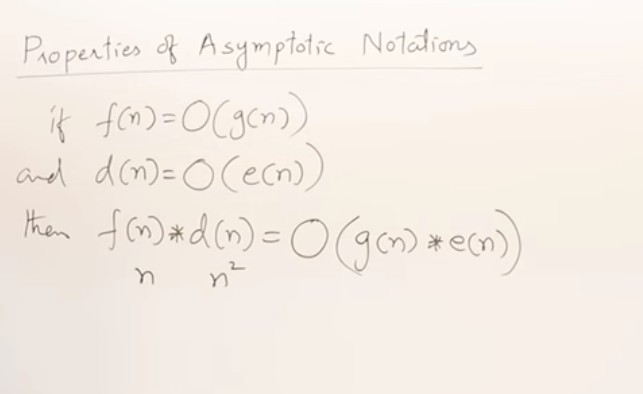 Properties of Asymptotic Notations
if f(n)=O(g(n))
and d(n)=O(e(n))
then f(n)*d(n)=O(g(n)*e(n))
n n²